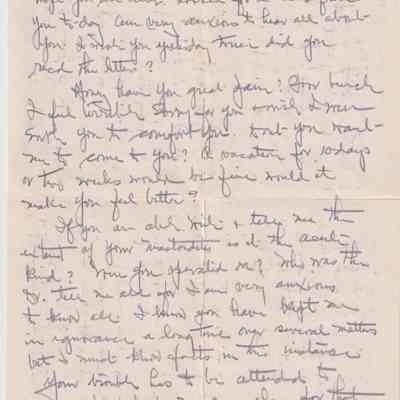 you to-day am very anxious to hear all about
you. I wrote you yesterday twice did you
read the letters?
Honey have you great pain? Poor
I feel terribly sorry for you wish I was
with you to comfort you. Don't you want
me to come to you? A vacation for 10 days
or two weeks would be fine would it
make you feel better?
If you are able write & tell me the
extent of your mastoiditis is it the acute
kind? Were you operated on? Who was the
Dr. Tell me all for I am very anxious
to know all I know you have kept me
in ignorance a long time over several matters
but I must know facts in this instance
Your trouble has to be attended to